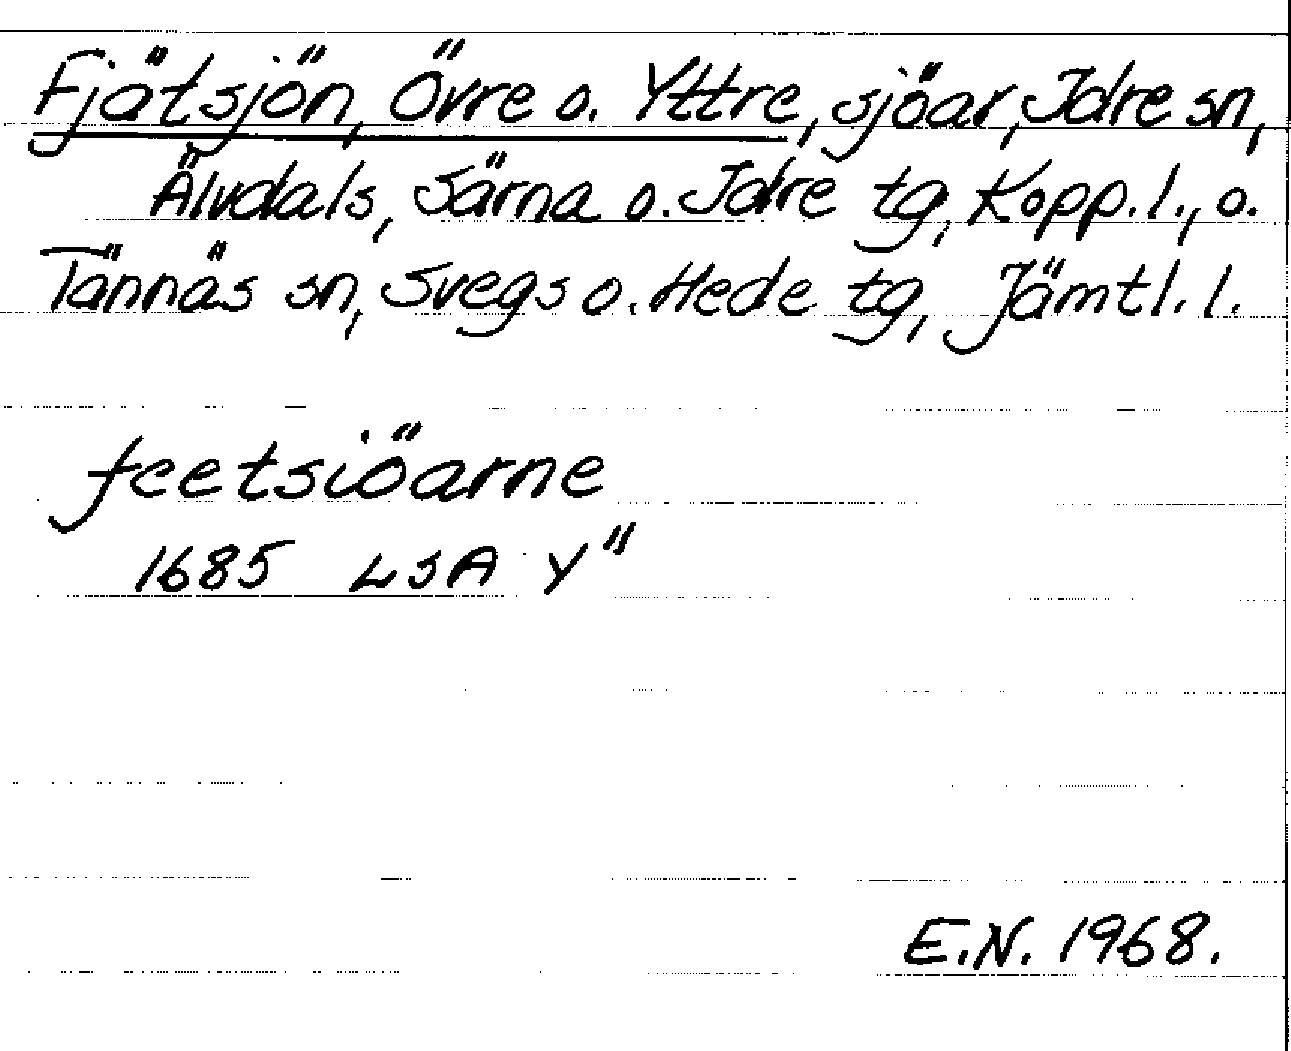 Fjätsjön, Övre o. Yttre, sjöar, Idre sn,
Älvdals, Särna o. Idre tg, Kopp. l., o.
Tännäs sn, Svegs o. Hede tg, Jämtl. l.
feetsiöarne
1685 LSA Y"
E.N. 1968.